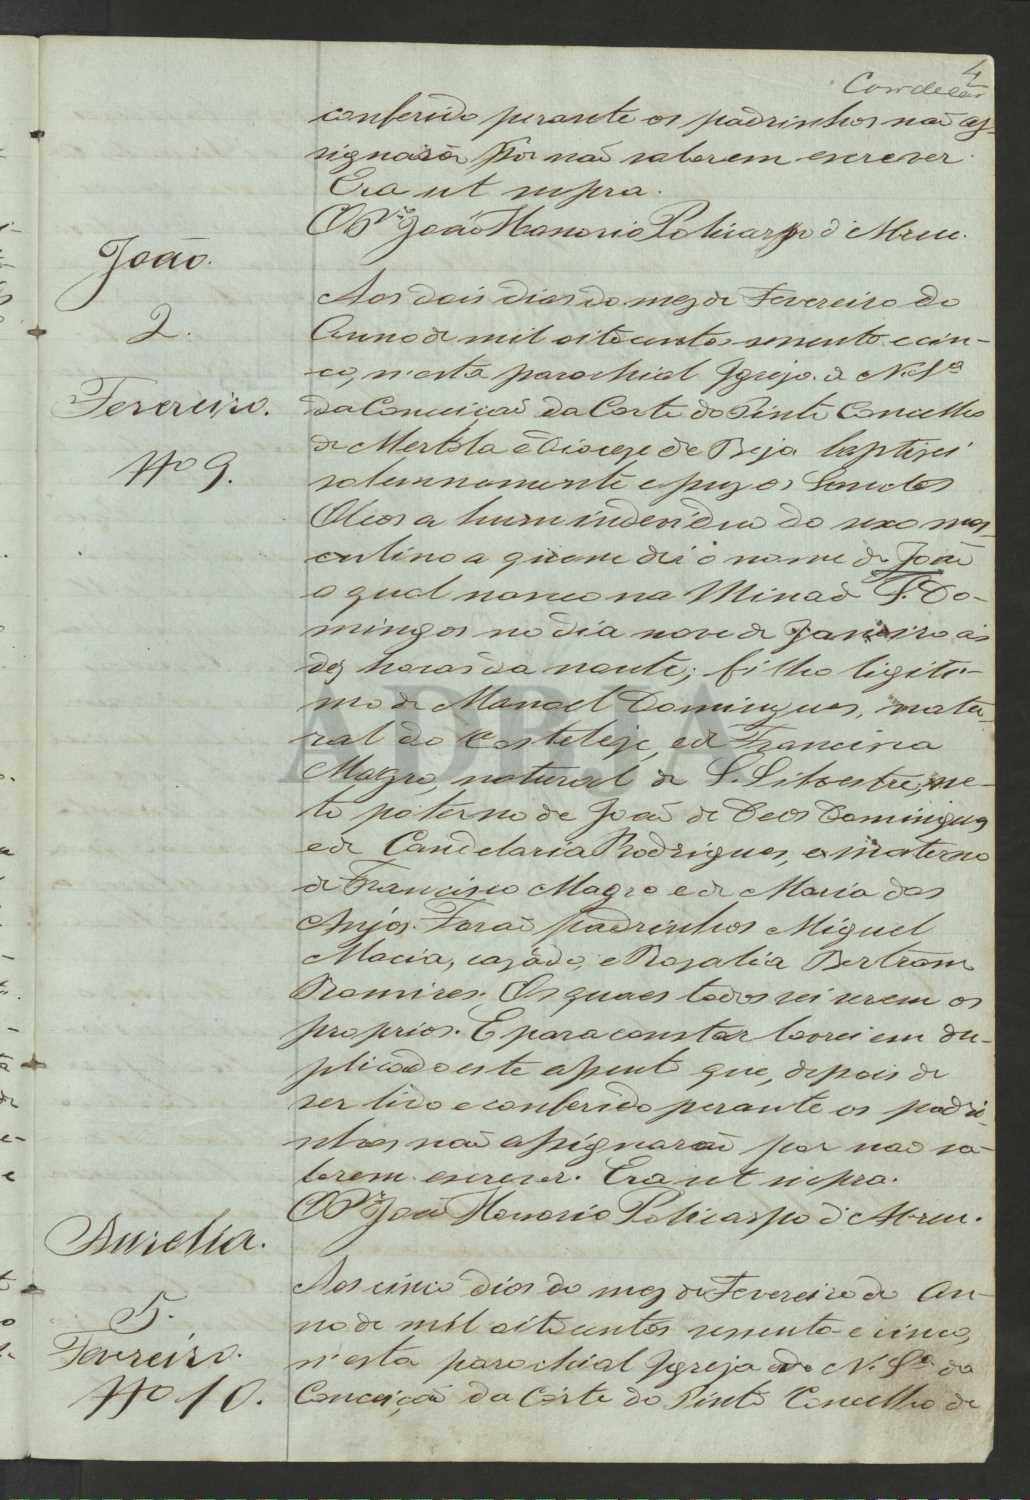 4
conferido perante os padrinhos não as-
signarão por não saberem escrever.
Era ut supra.
O Pr.or João Honorio Policarpo d'Abreu.
João.
2.
Fevereiro.
Nº 9.
Aos dois dias do mez de Fevereiro do
Anno de mil oitocentos sessenta e cin-
co, n'esta parochial Igreja de N. Srª
da Conceição da Corte do Pinto Concelho
de Mertola e Diocese de Beja baptisei
solemnemente e puz os Sanctos
Oleos a hum individuo do sexo mas-
culino a quem dei o nome de João
o qual nasceo na Mina de S. Do-
mingos no dia nove de Janeiro ás
dez horas da noute; filho ligiti-
mo de Manoel Domingues, natu-
ral do Castelejo, e de Francisca
Magro, natural de S. Silvestre, ne-
to paterno de João de Deos Domingues
e de Candelaria Rodrigues, e materno
de Francisco Magro e de Maria dos
Anjos. Forão padrinhos Miguel
Macia, casado, e Rozalia Bertram
Ramires. Os quaes todos sei serem os
proprios. E para constar lavrei em du-
plicado este assento que, depois de
ser lido e conferido perante os padri-
nhos não assignarão por não sa-
berem escrever. Era ut supra.
O Pr.or João Honorio Policarpo d'Abreu.
Aurelia.
5.
Fevereiro.
Nº 10.
Aos cinco dias do mez de Fevereiro do An-
no de mil oitocentos sessenta e cinco,
n'esta parochial Igreja de N. Srª da
Conceição da Côrte do Pinto Concelho de
ADBJA